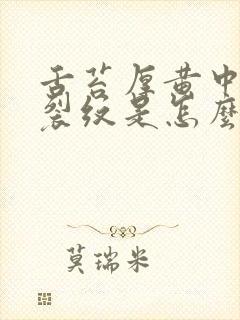 舌苔厚黄中
裂纹是怎麽
莫瑞米